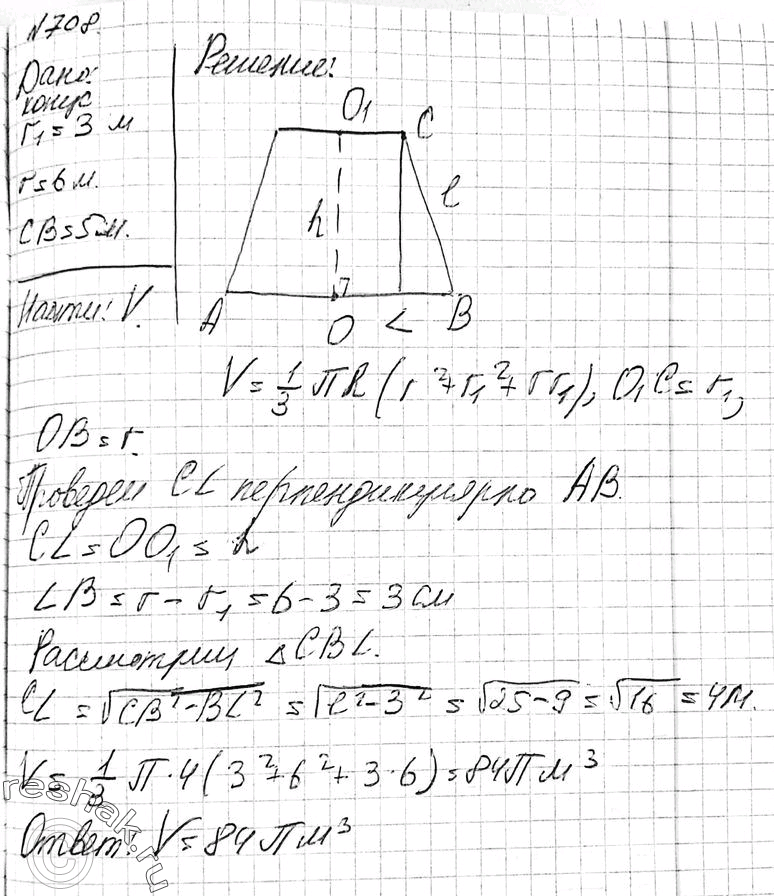 N708.
Дано:
конус
r₁ = 3 м
r = 6 м.
CB = 5 м.
Найти: V.
Решение:
O₁ C
h l
A O L B
V = 1/3 πh (r² + r₁² + rr₁), O₁C = r₁,
OB = r.
Проведем CL перпендикулярно AB.
CL = OO₁ = h
LB = r - r₁ = 6 - 3 = 3 см
Рассмотрим △CBL.
CL = √(CB² - BL²) = √(l² - 3²) = √(25 - 9) = √16 = 4 м.
V = 1/3 π · 4 (3² + 6² + 3 · 6) = 84π м³
Ответ: V = 84π м³
reshak.ru